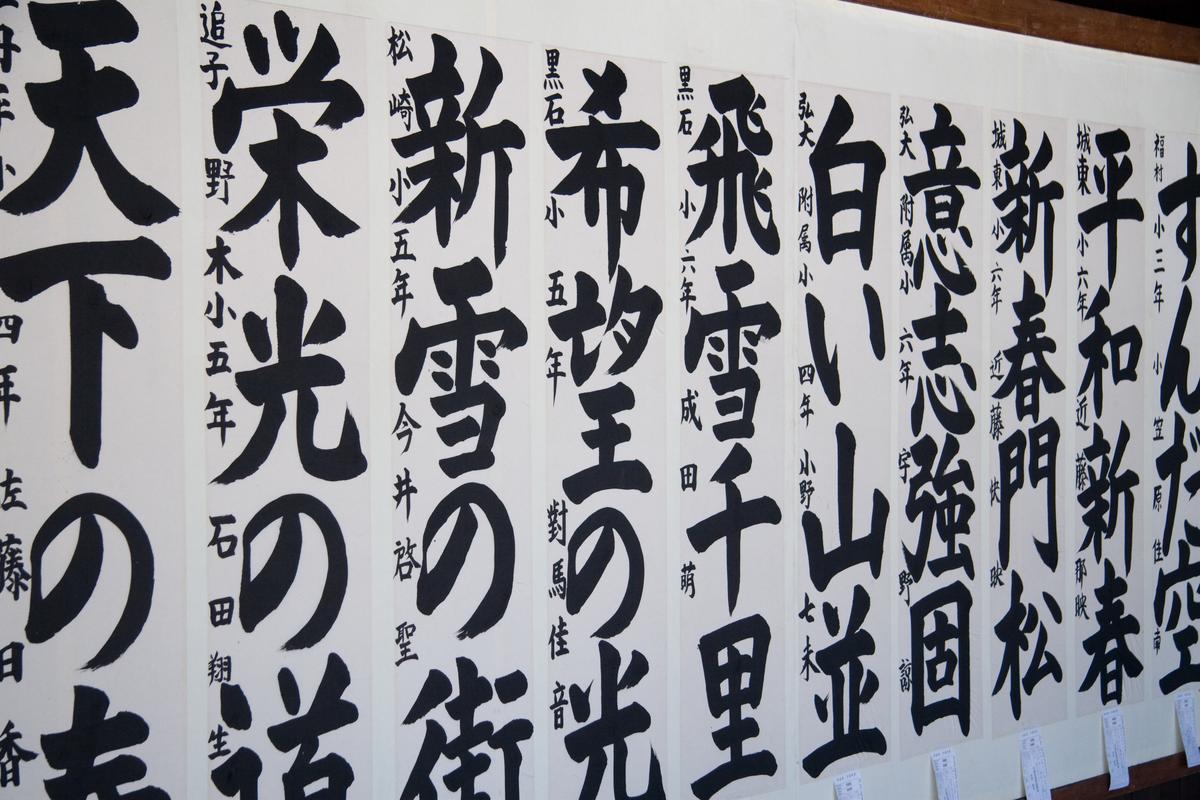 すんだ空
福村小三年 小笠原佳南
平和新春
城東小六年 近藤那映
新春門松
城東小六年 近藤快映
意志強固
弘大附属小六年 宇野諒
白い山並
弘大附属小四年 小野七未
飛雪千里
黒石小六年 成田萌
希望の光
黒石小五年 對馬佳音
新雪の街
松崎小五年 今井啓聖
栄光の道
追子野木小五年 石田翔生
天下の
年小四年 左藤日香